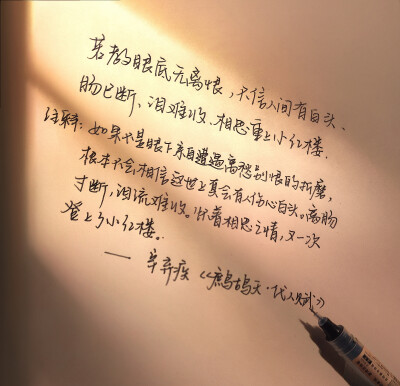 若教眼底无离恨，不信人间有白头、
肠已断，泪难收、相思重上小红楼．
注释：如果不是眼下亲自遭逼离愁别恨的折磨，
根本不会相信这世上真会有人伤心白头。离肠
寸断，泪流难收。怀着相思之情，又一次
登上了小红楼。
—— 辛弃疾《鹧鸪天·代人赋》